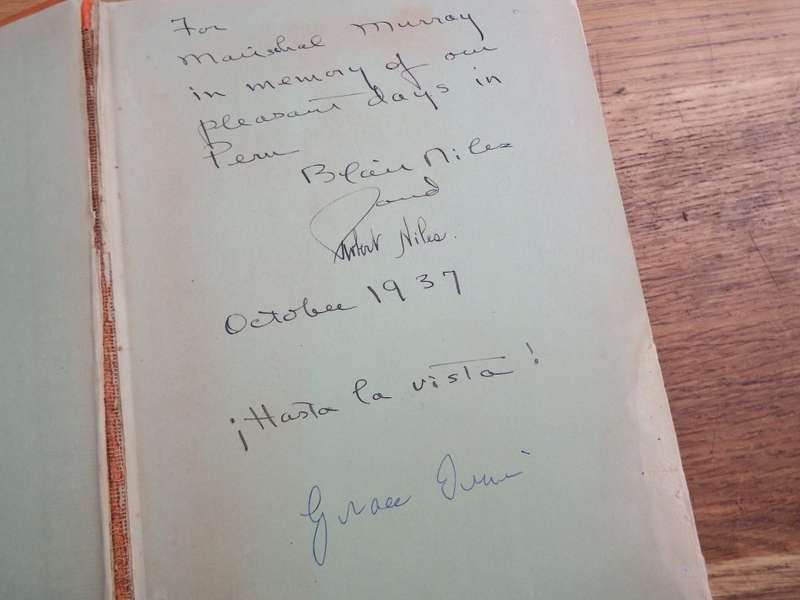 For
Marshal Murray
in memory of our
pleasant days in
Peru
Blair Niles
and
Robert Niles.
October 1937
¡Hasta la vista!
Grace